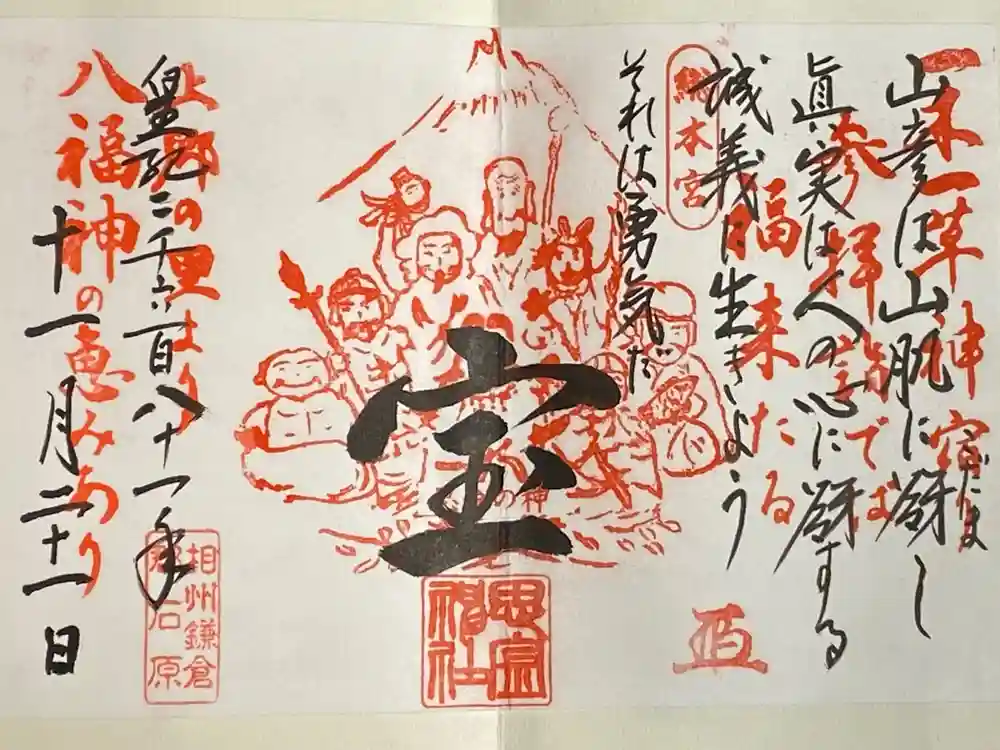 一木一草神宿
山彦は山肌に谺し
参拝詣でば
眞実は人の心に谺する
福来たる
総本宮
誠義に生きよう
それは勇気だ
宝
思金神社
皇紀二千六百八十一年
八福神の恵みあり
十一月二十一日
相州鎌倉
石原